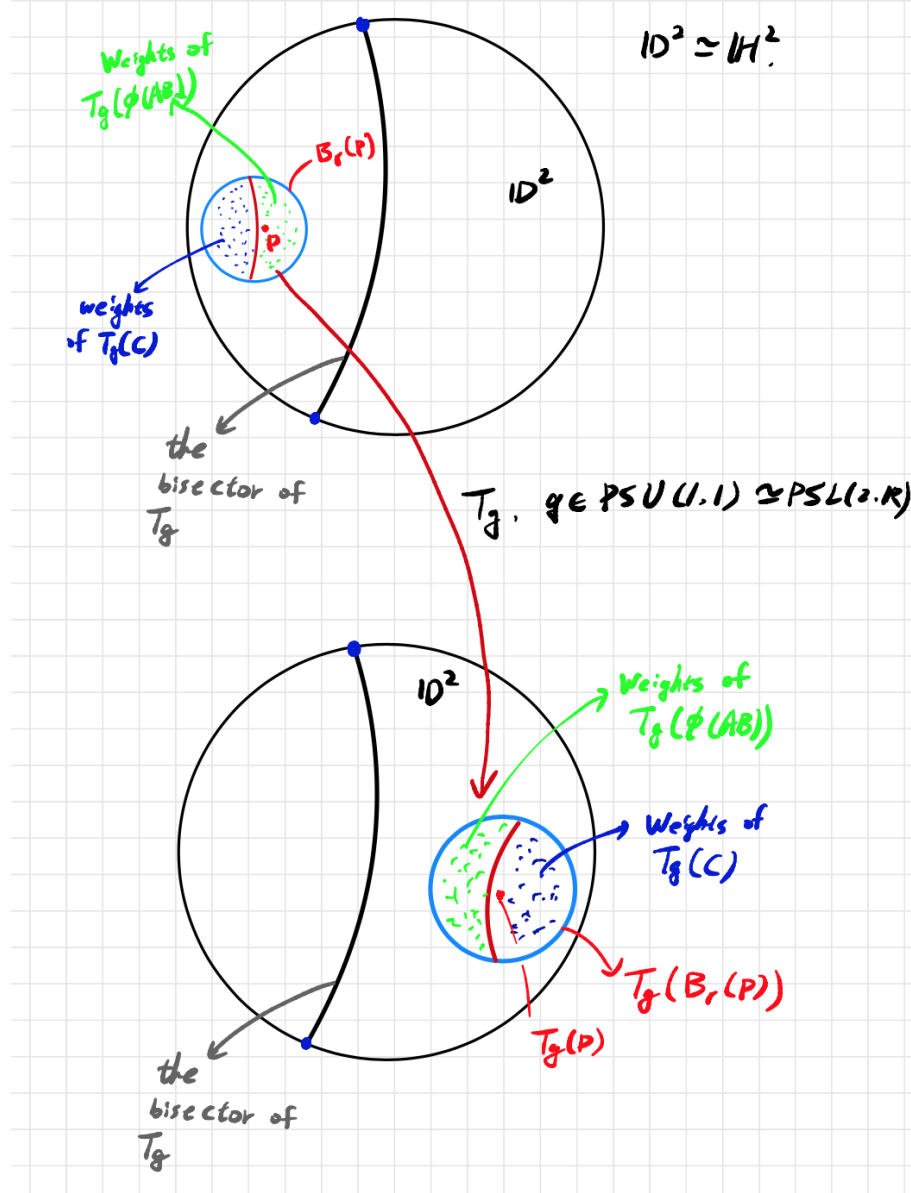 𝔻² ≃ ℍ².
Weights of
T_g(ϕ(AB))
B_r(P)
𝔻²
P
weights
of T_g(C)
the
bisector of
T_g
T_g, g ∈ PSU(1.1) ≃ PSL(2.ℝ)
𝔻²
Weights of
T_g(ϕ(AB))
Weights of
T_g(C)
T_g(B_r(P))
T_g(P)
the
bisector of
T_g